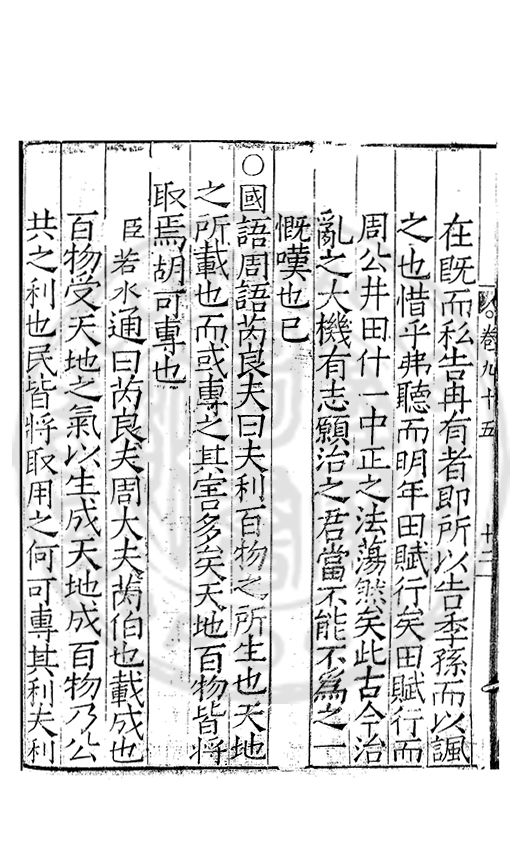 卷九十五 十二
在既而私告冉有者即所以告季孫而以諷
之也惜乎弗聽而明年田賦行矣田賦行而
周公井田什一中正之法蕩然矣此古今治
亂之大機有志願治之君當不能不爲之一
慨嘆也已
○國語周語芮良夫曰夫利百物之所生也天地
之所載也而或專之其害多矣天地百物皆將
取焉胡可專也
臣若水通曰芮良夫周大夫芮伯也載成也
百物受天地之氣以生成天地成百物乃公
共之利也民皆將取用之何可專其利夫利